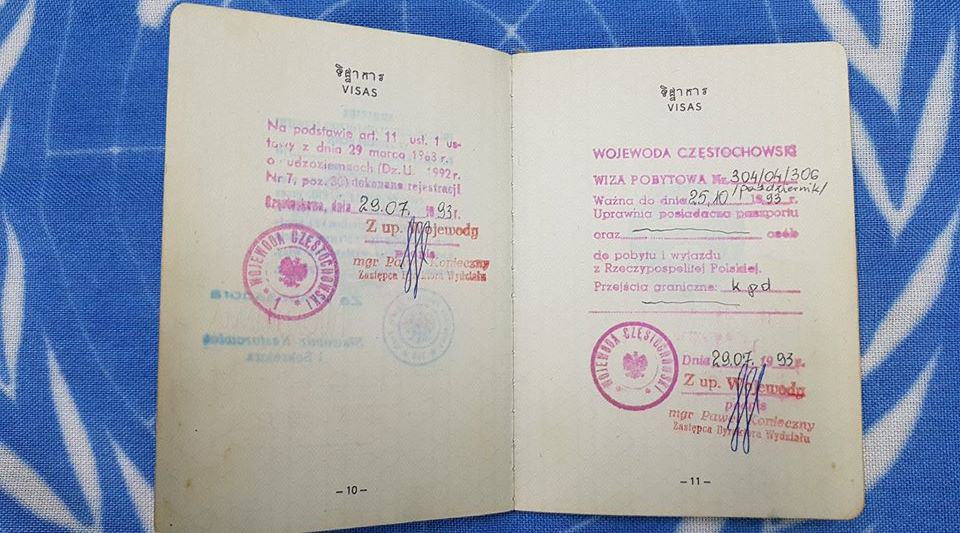 ទិដ្ឋាការ
VISAS
Na podstawie art. 11 ust. 1 us-
tawy z dnia 29 marca 1963 r.
o cudzoziemcach (Dz.U. 1992 r.
Nr 7, poz. 30) dokonano rejestracji
Częstochowa, dnia 29.07. 1993 r.
Z up. Wojewody
mgr Paweł Konieczny
Zastępca Dyrektora Wydziału
WOJEWODA CZĘSTOCHOWSKI
1
– 10 –
ទិដ្ឋាការ
VISAS
WOJEWODA CZĘSTOCHOWSKI
WIZA POBYTOWA Nr 304/04/306
/październik/
Ważna do dnia 25.10 1993 r.
Uprawnia posiadacza paszportu
oraz osób
do pobytu i wyjazdu
z Rzeczypospolitej Polskiej.
Przejścia graniczne: kpd
WOJEWODA CZĘSTOCHOWSKI
Dnia 29.07. 1993 r.
Z up. Wojewody
podpis
mgr Paweł Konieczny
Zastępca Dyrektora Wydziału
– 11 –